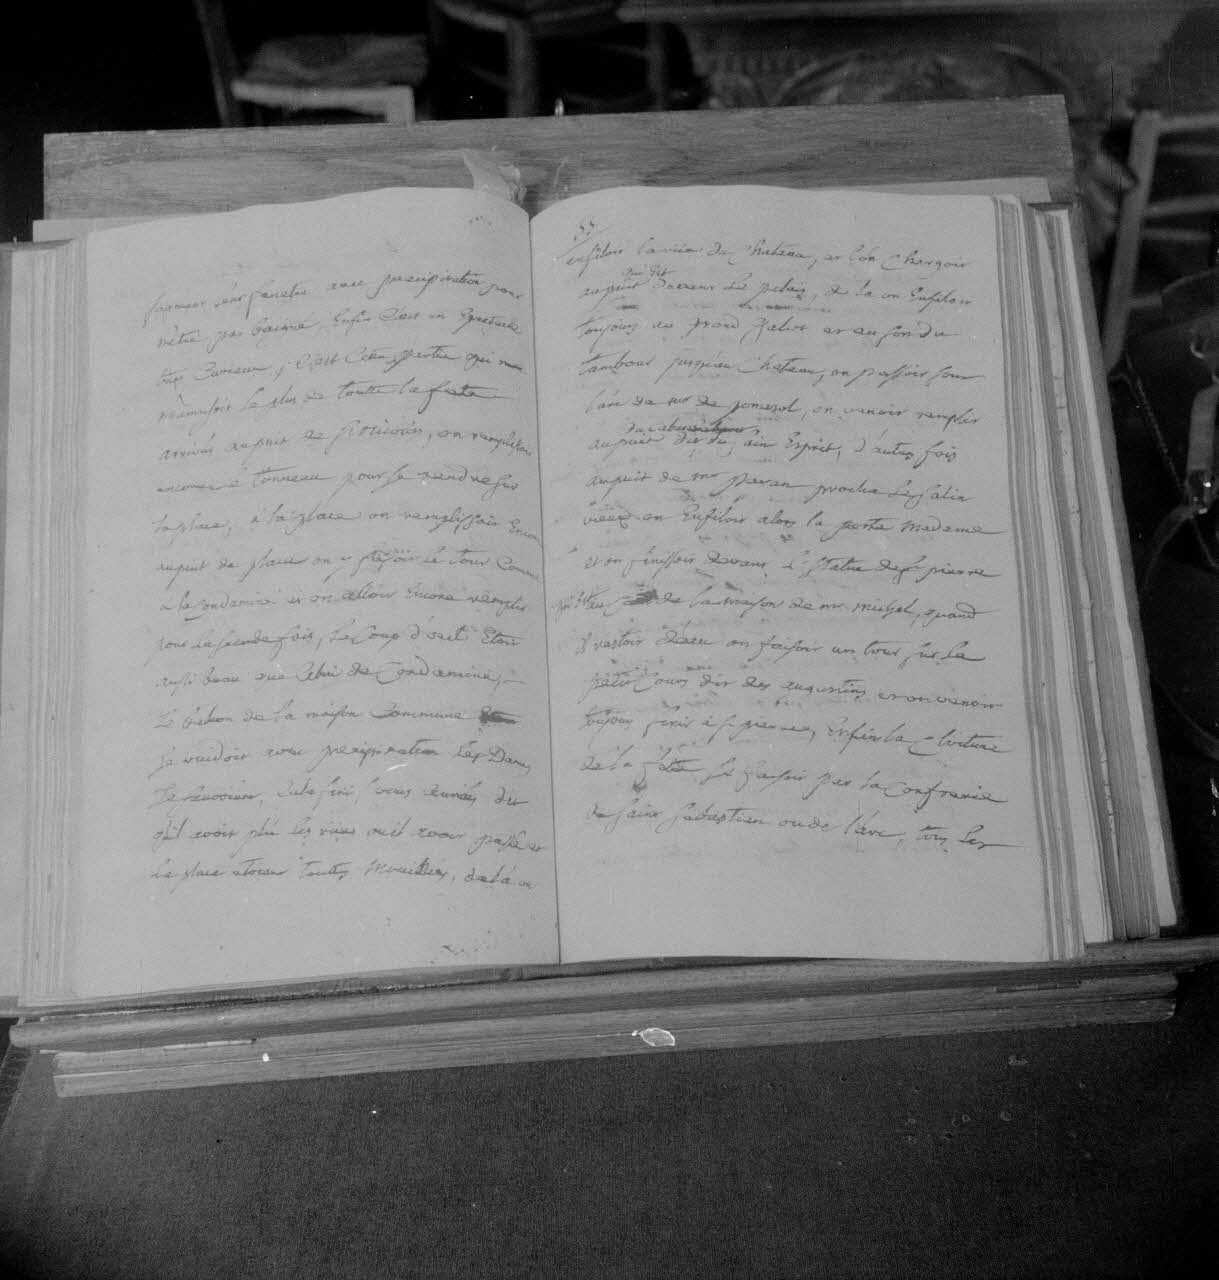 fermeur leur fenetre avec precipitation pour
n'etre pas baigné, Enfin C'est un Spectacle
fort Curieux, C'est Cette partie qui
m'amusoit le plus de toutte la fete
arrivés au puit de, on remplissoit
encore le tonneau pour se rendre sus
la place, a la place on remplissoit Encore
au puit de place on y fesoit le tour Comme
a la Condamine et on alloit Encore remplir
pour la segonde fois, le Coup d'oeil Etoit
aussi beau que Celui de Condamine,
Le balcon de la maison Commune
se vuidoit avec precipitation les Dames
se sauvoient, a la fin, vous auriés dit
qu'il avoit plu les rues ou il avoit passé et
la place etoient touttes Mouillées, de la on
55
enfiloit la rue du Chateau, et l'on Chargoit
qui Est
au puit dessur le palais, de la on Enfiloit
toujours au grand galot et au son du
tambour jusqu'au Chateau, on passoit sous
l'arc de mr de pomerol, on venoit remplir
au puit dit du sain Esprit, d'autres fois
au puit de mr pavan proche le salin
vieux on Enfiloit alors la porte Madame
Et on finissoit devant la Statue de St pierre
qui Est au de la maison de mr michel, quand
il restoit d'eau on faisoit un tour sur le
petit Cours dit des augustins et on venoit
toujours finir a st pierre, Enfin la Cloiture
de la fete se faisoit par la Confrerie
de saint Sebastien ou de l'arc, tous les